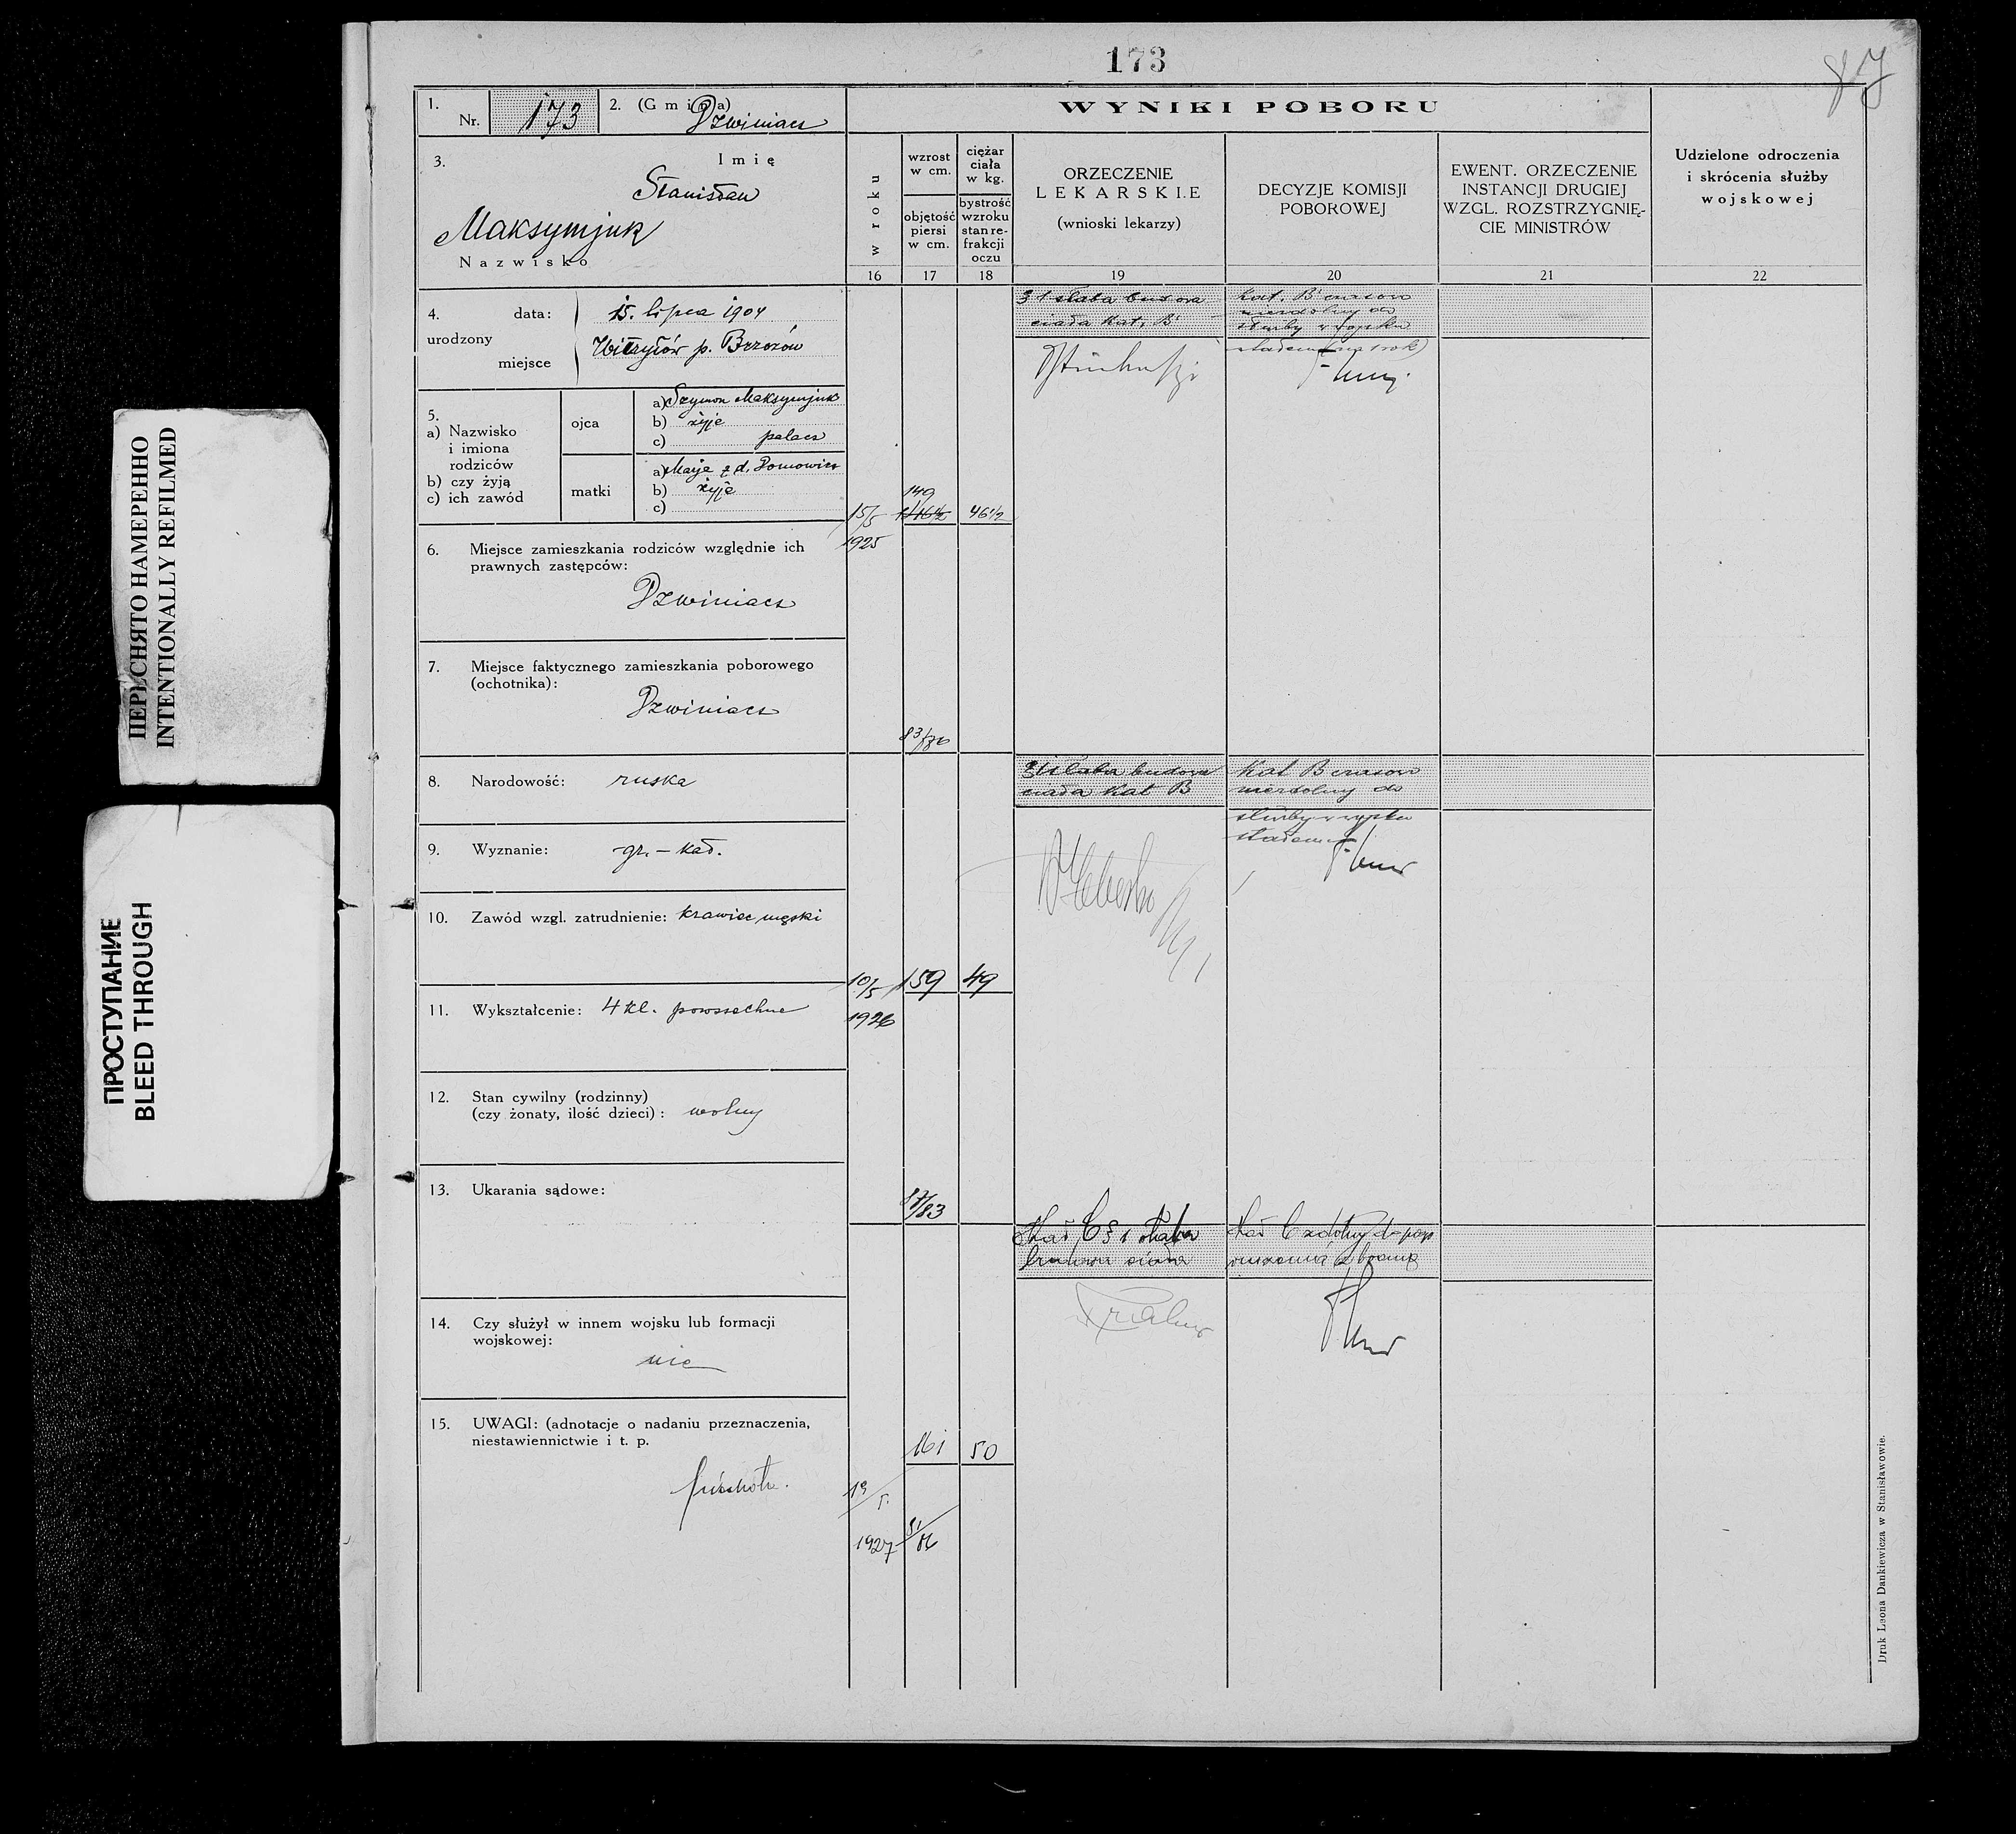 173
87
1.
Nr. 173
2. (Gmina) Dzwiniacz
WYNIKI POBORU
3. Imię
Stanisław
Maksymjuk
Nazwisko
w roku
wzrost w cm.
objętość piersi w cm.
ciężar ciała w kg.
bystrość wzroku stan re- frakcji oczu
ORZECZENIE
LEKARSKIE
(wnioski lekarzy)
DECYZJE KOMISJI
POBOROWEJ
EWENT. ORZECZENIE
INSTANCJI DRUGIEJ
WZGL. ROZSTRZYGNIĘ-
CIE MINISTRÓW
Udzielone odroczenia
i skrócenia służby
wojskowej
16 17 18 19 20 21 22
4. urodzony
data: 15. lipca 1904
miejsce Witryłów p. Brzozów
5.
a) Nazwisko
i imiona
rodziców
b) czy żyją
c) ich zawód
ojca
a) Szymon Maksymjuk
b) żyje
c) palacz
matki
a) Marja z d.
b) żyje
c)
6. Miejsce zamieszkania rodziców względnie ich
prawnych zastępców:
Dzwiniacz
7. Miejsce faktycznego zamieszkania poborowego
(ochotnika):
Dzwiniacz
8. Narodowość: ruska
9. Wyznanie: gr.-kat.
10. Zawód wzgl. zatrudnienie: krawiec męski
11. Wykształcenie: 4 kl. powszechne
12. Stan cywilny (rodzinny)
(czy żonaty, ilość dzieci): wolny
13. Ukarania sądowe:
14. Czy służył w innem wojsku lub formacji
wojskowej:
nie
15. UWAGI: (adnotacje o nadaniu przeznaczenia,
niestawiennictwie i t. p.
piechota.
15/5
1925
149
46 1/2
§ 1 słaba budowa
ciała kat. B
kat. B czasowo
niezdolny do
służby w wojsku
stałem (na 1 rok)
10/5
1926
159
49
§ 1 słaba budowa
ciała Kat B
Kat B czasowo
niezdolny do
służby w wojsku
stałem
19/5.
1927
161
50
Kat C § 1 słaba
budowa ciała
Kat C zdolny do posp
ruszenia z bronią
Druk Leona Dankiewicza w Stanisławowie.
ПЕРЕСНЯТО НАМЕРЕННО
INTENTIONALLY REFILMED
ПРОСТУПАНИЕ
BLEED THROUGH